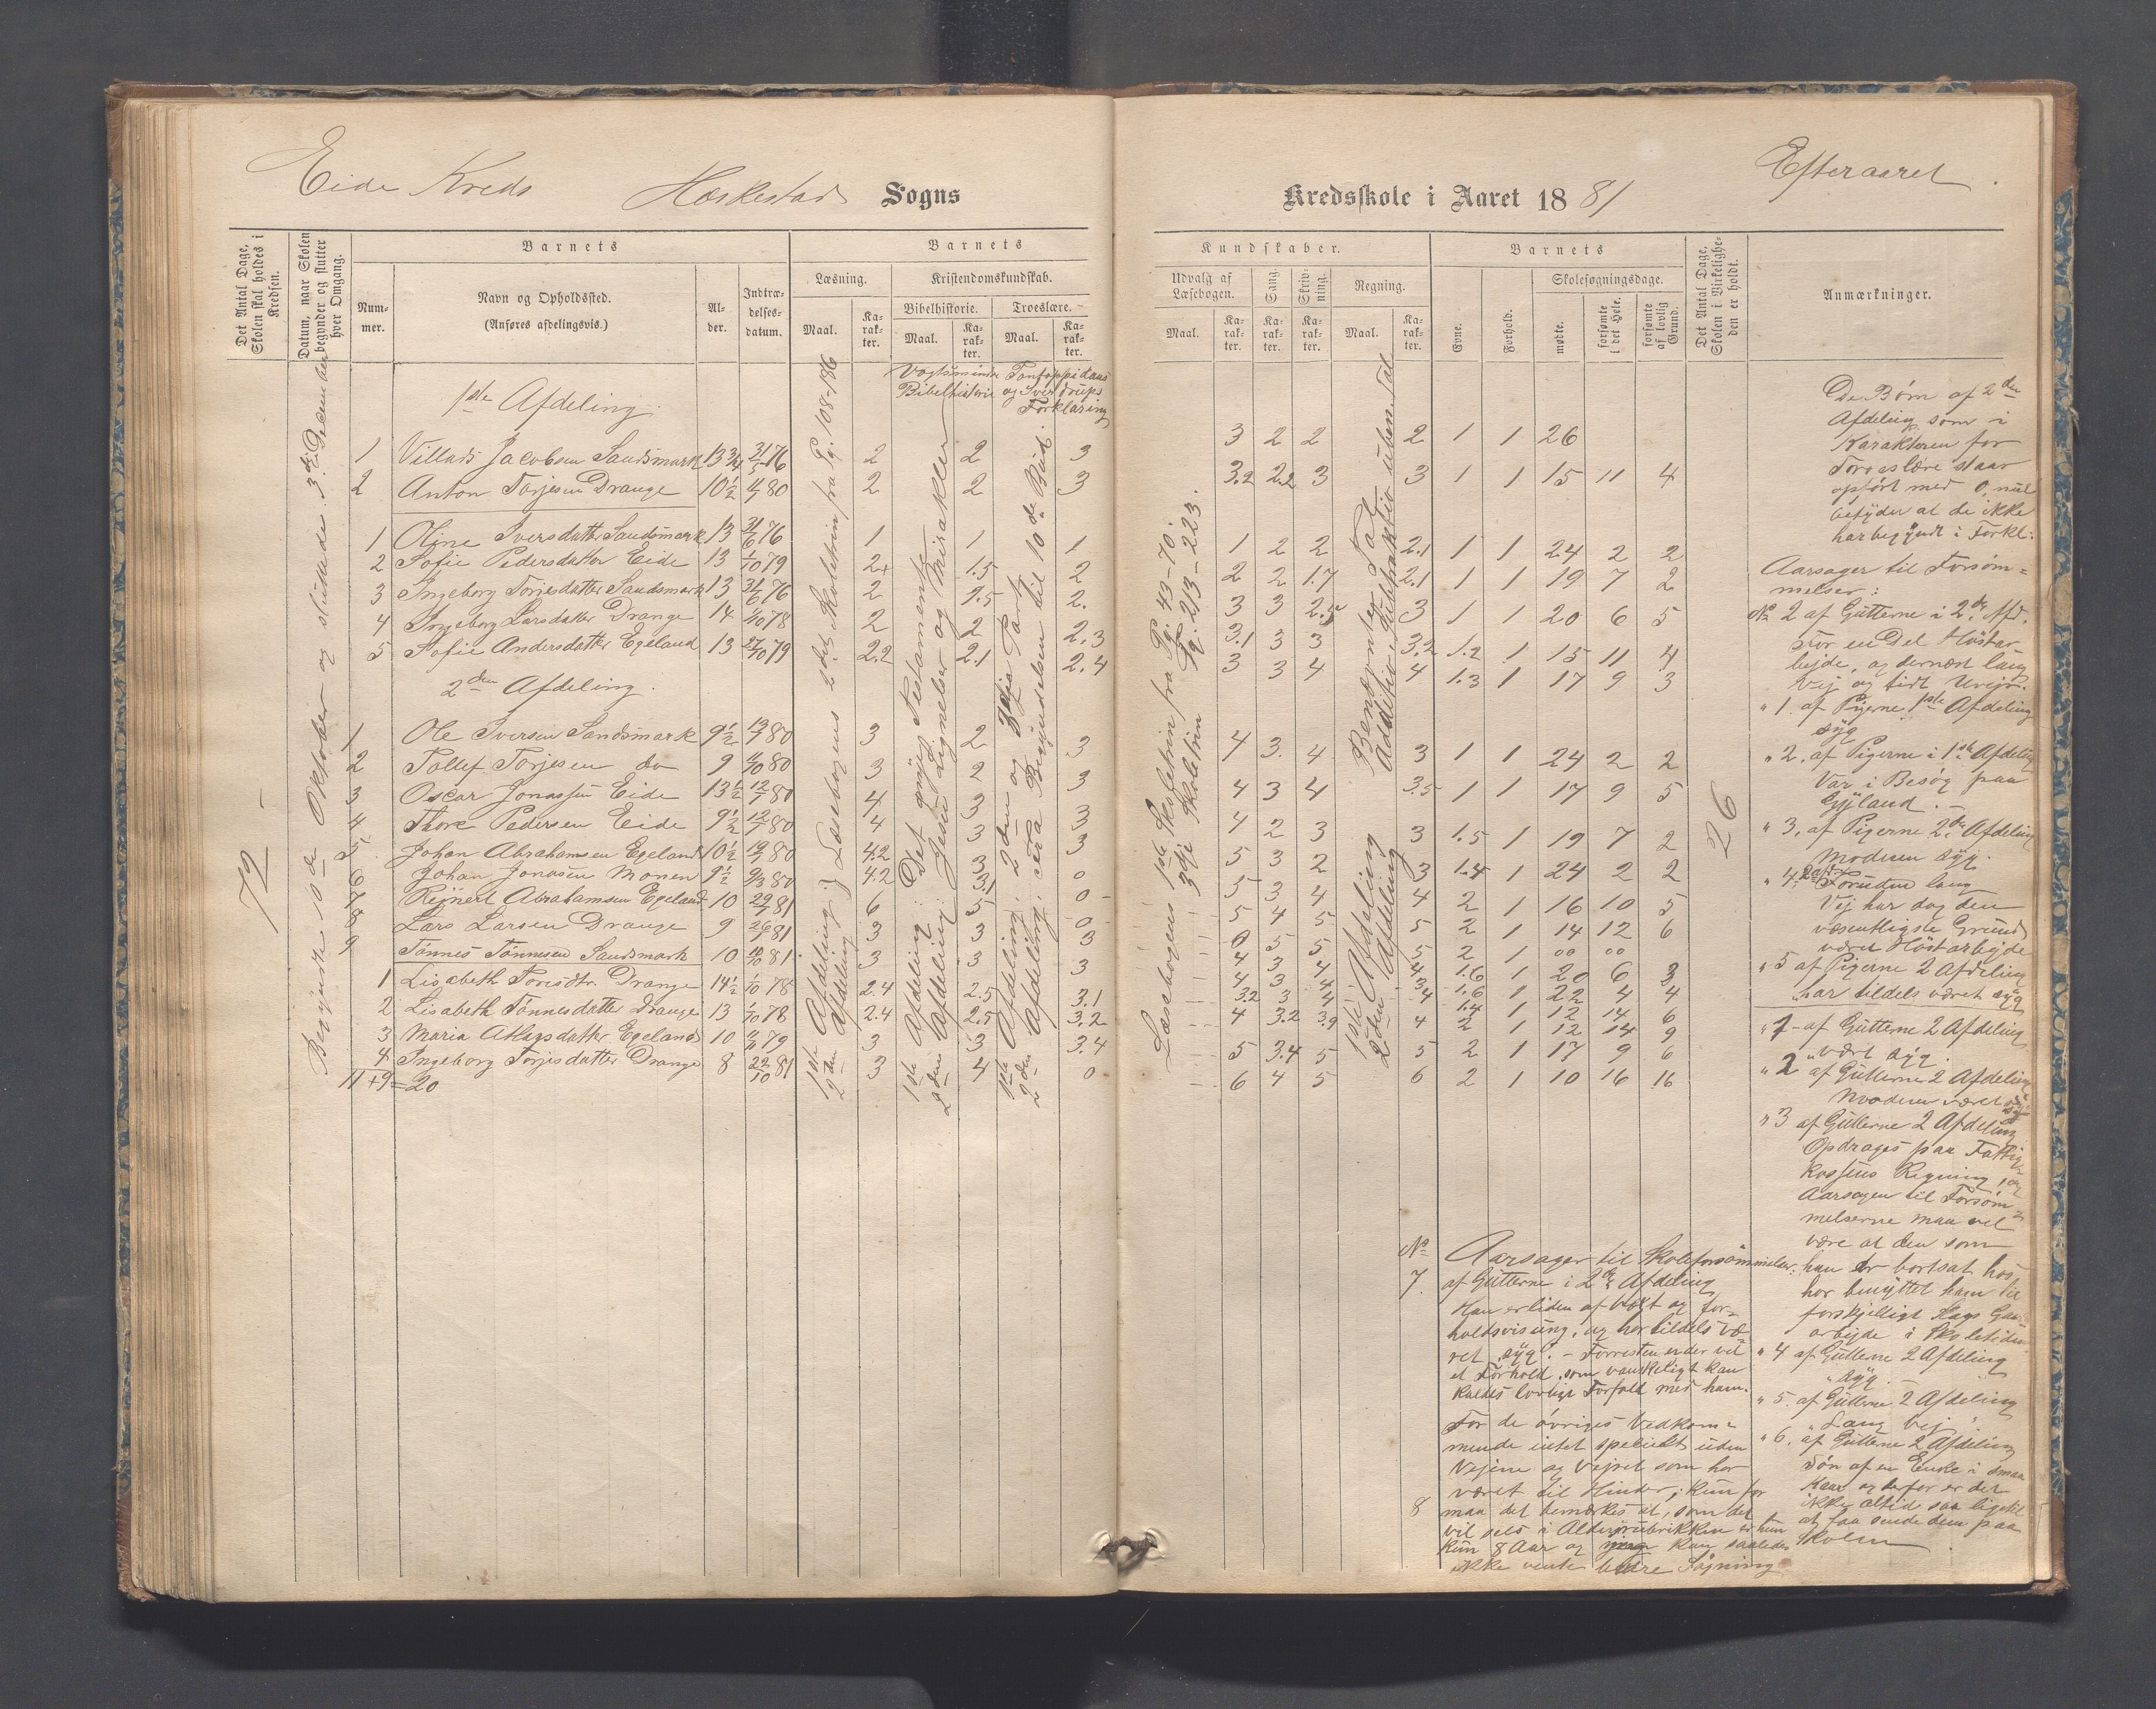 Eide Kreds Heskestad Sogns
Det Antal Dage, Skolen skal holdes i Kredsen.
Datum, naar Skolen begynder og slutter hver Omgang.
Barnets
Nummer.
Navn og Opholdssted.
(Anføres afdelingsvis.)
Alder.
Indtrædelsesdatum.
Barnets
Læsning.
Maal.
Karakter.
Kristendomskundskab.
Bibelhistorie.
Maal.
Karakter.
Troeslære.
Maal.
Karakter.
72
Begyndte 10de Oktober og sluttede 3die December
Vogts mindre Bibelhistorie
Pontoppidans og Sverdrups Forklaring
1ste Afdeling.
1 Villads Jacobsen Sandsmark 13 3/4 31/5 76 2 2 3
2 Anton Torjesen Drange 10 1/2 4/7 80 2 2 3
1 Oline Iversdatter Sandsmark 13 31/6 76 1 1 1
2 Sofie Pedersdatter Eide 13 1/10 79 2+ 1.5 2
3 Ingeborg Torjesdatter Sandsmark 13 31/6 76 2 1.5 2.
4 Ingeborg Larsdatter Drange 14 1/10 78 2 2 2.3
5 Sofie Andersdatter Egeland 13 27/10 79 2.2 2.1 2.4
2den Afdeling.
1 Ole Iversen Sandsmark 9 1/2 13/7 80 3 2 3
2 Tollef Torjesen do 9 4/10 80 3 2 3
3 Oscar Jonassen Eide 13 1/2 12/7 80 4 3 3
4 Thore Pedersen Eide 9 1/2 12/7 80 4 3 3
5 Johan Abrahamsen Egeland 10 1/2 19/7 80 4.2 3 0
6 Johan Jonasen Monen 9 1/2 9/3 80 4.2 3.1 0
7 Rejnert Abrahamsen Egeland 10 29/7 81 6 5 0
8 Lars Larsen Drange 9 26/7 81 3 3 3
9 Tønnes Tønnesen Sandsmark 10 10/10 81 3 3 3
1 Lisabeth Toresdtr. Drange 14 1/2 1/10 78 2.4 2.5 3.1
2 Lisabeth Tønnesdatter Drange 13 1/10 78 2.4 2.5 3.2
3 Maria Atlagsdatter Egeland 10 79 3 3 3.4
4 Ingeborg Torjesdatter Drange 8 22/10 81 3 4 0
11 + 9 = 20
1ste Afdeling } Læsebogens 2det Skoletrin fra Pg. 108-186
2den Afdeling
1ste Afdeling: Det gamle Testamente
2den Afdeling: Jesu Lignelser og Mirakler
1ste Afdeling: 2den og 3die Part
2den Afdeling: Fra Begyndelsen til 10de Bud.
Kredsskole i Aaret 1881 Efteraaret
Kundskaber.
Udvalg af Læsebogen.
Maal.
Karakter.
Sang.
Karakter.
Skrivning.
Karakter.
Regning.
Maal.
Karakter.
Barnets
Evne.
Forhold.
Skolesøgningsdage.
mødte.
forsømte i det Hele.
forsømte af lovlig Grund.
Det Antal Dage, Skolen i Virkeligheden er holdt.
Anmærkninger.
Læsebogens 1ste Skoletrin fra Pg. 43-70.
3die Skoletrin Pg. 213-223.
1ste Afdeling Benævnte Tal
2den Afdeling Addition, Subtraktio uben. Tal
3 2 2 2 1 1 26
3.2 2.2 3 3 1 1 15 11 4
1 2 2 2.1 1 1 24 2 2
2 2 1.7 2.1 1 1 19 7 2
3 3 2.5 3 1 1 20 6 5
3.1 3 3 3.2 1.2 1 15 11 4
3 3 4 4 1.3 1 17 9 3
4 3. 4 3 1 1 24 2 2
4 3 4 3.5 1 1 17 9 5
4 2 3 3 1.5 1 19 7 2
5 3 2 3 1.4 1 24 2 2
5 3 4 4 2 1 16 10 5
5 4 5 5 2 1 14 12 6
0 5 5 5 2 1 00 00
4 3 4 4 1.6 1 20 6 3
4 3 4 3 1.6 1 22 4 4
3.2 3 4 4 1.4 1 12 14 6
4 3.2 3.9 4 2 1 12 14 9
5 3.4 5 5 2 1 17 9 6
6 4 5 6 2 1 10 16 16
26
De Børn af 2den
Afdeling som i
Karakteren for
Troeslære staar
opført med 0, nul
betyder at de ikke
har begyndt i Forkl:
Aarsager til Forsøm=
melser:
No 2 af Gutterne i 2de Afd.
stor en Del Høstar-
bejde, og dernæst lang
Vej og tidt Uvejr.
" 1. af Pigerne 1ste Afdeling
syg
" 2. af Pigerne i 1ste Afdeling
Var i Besøg paa
Gyland. –
" 3, af Pigerne 2de Afdeling
Moderen syg.
" 4. Foruden lang
Vej har dog den
væsentligste Grund
været Høstarbejde
" 5 af Pigerne 2 Afdeling
har tildels været syg
" 1 – af Gutterne 2 Afdeling
været syg.
" 2 af Gutterne 2 Afdeling
Moderen været syg
" 3 af Gutterne 2 Afdeling
Opdrages paa Fattig-
kassens Regning, og
Aarsagen til Forsøm-
melserne maa vel
være at den som
han er bortsat hos
har benyttet ham til
forskjelligt Slags Gaards-
arbejde i Skoletiden
" 4 af Gutterne 2 Afdeling
" syg. –
" 5. af Gutterne 2 Afdeling
" Lang Vej
" 6. af Gutterne 2 Afdeling
Søn af en Enke i smaa
Kaar og derfor er det
ikke altid saa ligetil
at faa sende dem paa
Skolen
No Aarsager til Skoleforsømmelser.
7. af Gutterne i 2de Afdeling
Han er liden af Vext og for-
holdsvis ung, og har tildels væ-
ret syg. – Forresten er der vel
et Forhold, som vanskeligt kan
kaldes lovligt Forfald med ham.
For de øvriges Vedkom-
mende intet specielt uden
Vejene og Vejret som har
været til Hinder; kun for
8 maa det bemærkes at, som det
vil sees i Aldersrubrikken er hun
kun 8 Aar og kan saaledes
ikke vente bedre Søgning